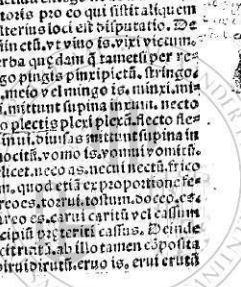 toris pro co qui sistit aliquem
lterius loci est disputatio. De
in ctū.vt vino is.vixi victum.
erba quę dam q̄ tametsi per re
go pingis pinxi pictū.stringo.
.meio vel mingo is.minxi.mi
ī.mittunt supina in xum.necto
o plectis plexi plexū.flecto fle⸗
inui.diuisas mittunt supina in
ocitū.vomo is.vomui vomitū.
licet.neco as.necui nectū.frico
m.quod etiā ex proportione fe⸗
reo es.torrui.tostum.doceo.es.
areo es.carui caritū vel cassum
cipiū pręteriti cassus. Deinde
citritū.ab illo tamen cōposita
birui dirutū.eruo is.erui erutū